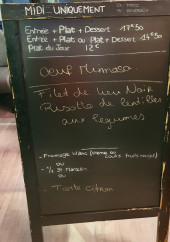 MIDI UNIQUEMENT
Entrée + Plat + Dessert 17€50
Entrée + Plat ou Plat + Dessert 14€50
Plat du Jour 12€
Oeuf Mimosa
Filet de lieu Noir
Risotto de lentilles
aux légumes
- Fromage blanc (crème ou coulis fruits rouges)
ou
- 1/2 St Marcellin
ou
- Tarte citron